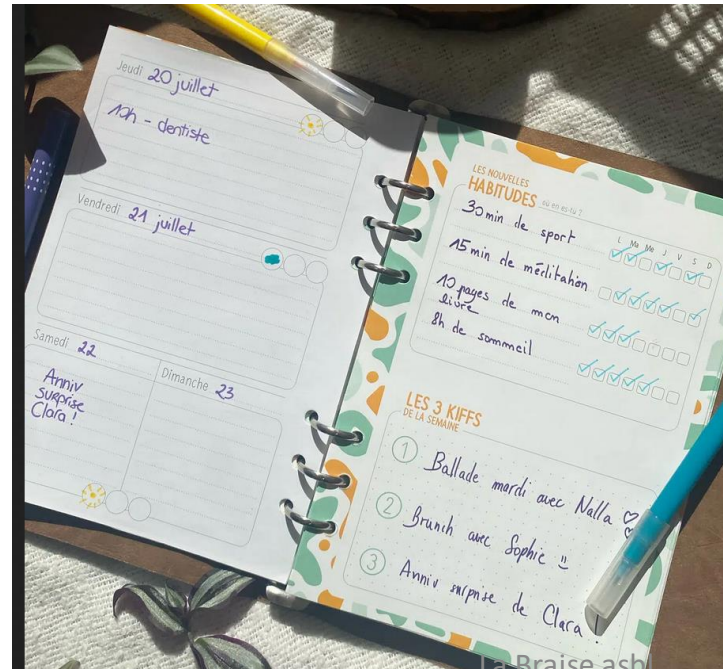 Jeudi 20 juillet
10h - dentiste
Vendredi 21 juillet
Samedi 22
Anniv
surprise
Clara !
Dimanche 23
LES NOUVELLES
HABITUDES où en es-tu ?
L Ma Me J V S D
30 min de sport
15 min de méditation
10 pages de mon
livre
8h de sommeil
LES 3 KIFFS
DE LA SEMAINE
1 Ballade mardi avec Nalla ♡
2 Brunch avec Sophie
3 Anniv surprise de Clara !
La Braise ash